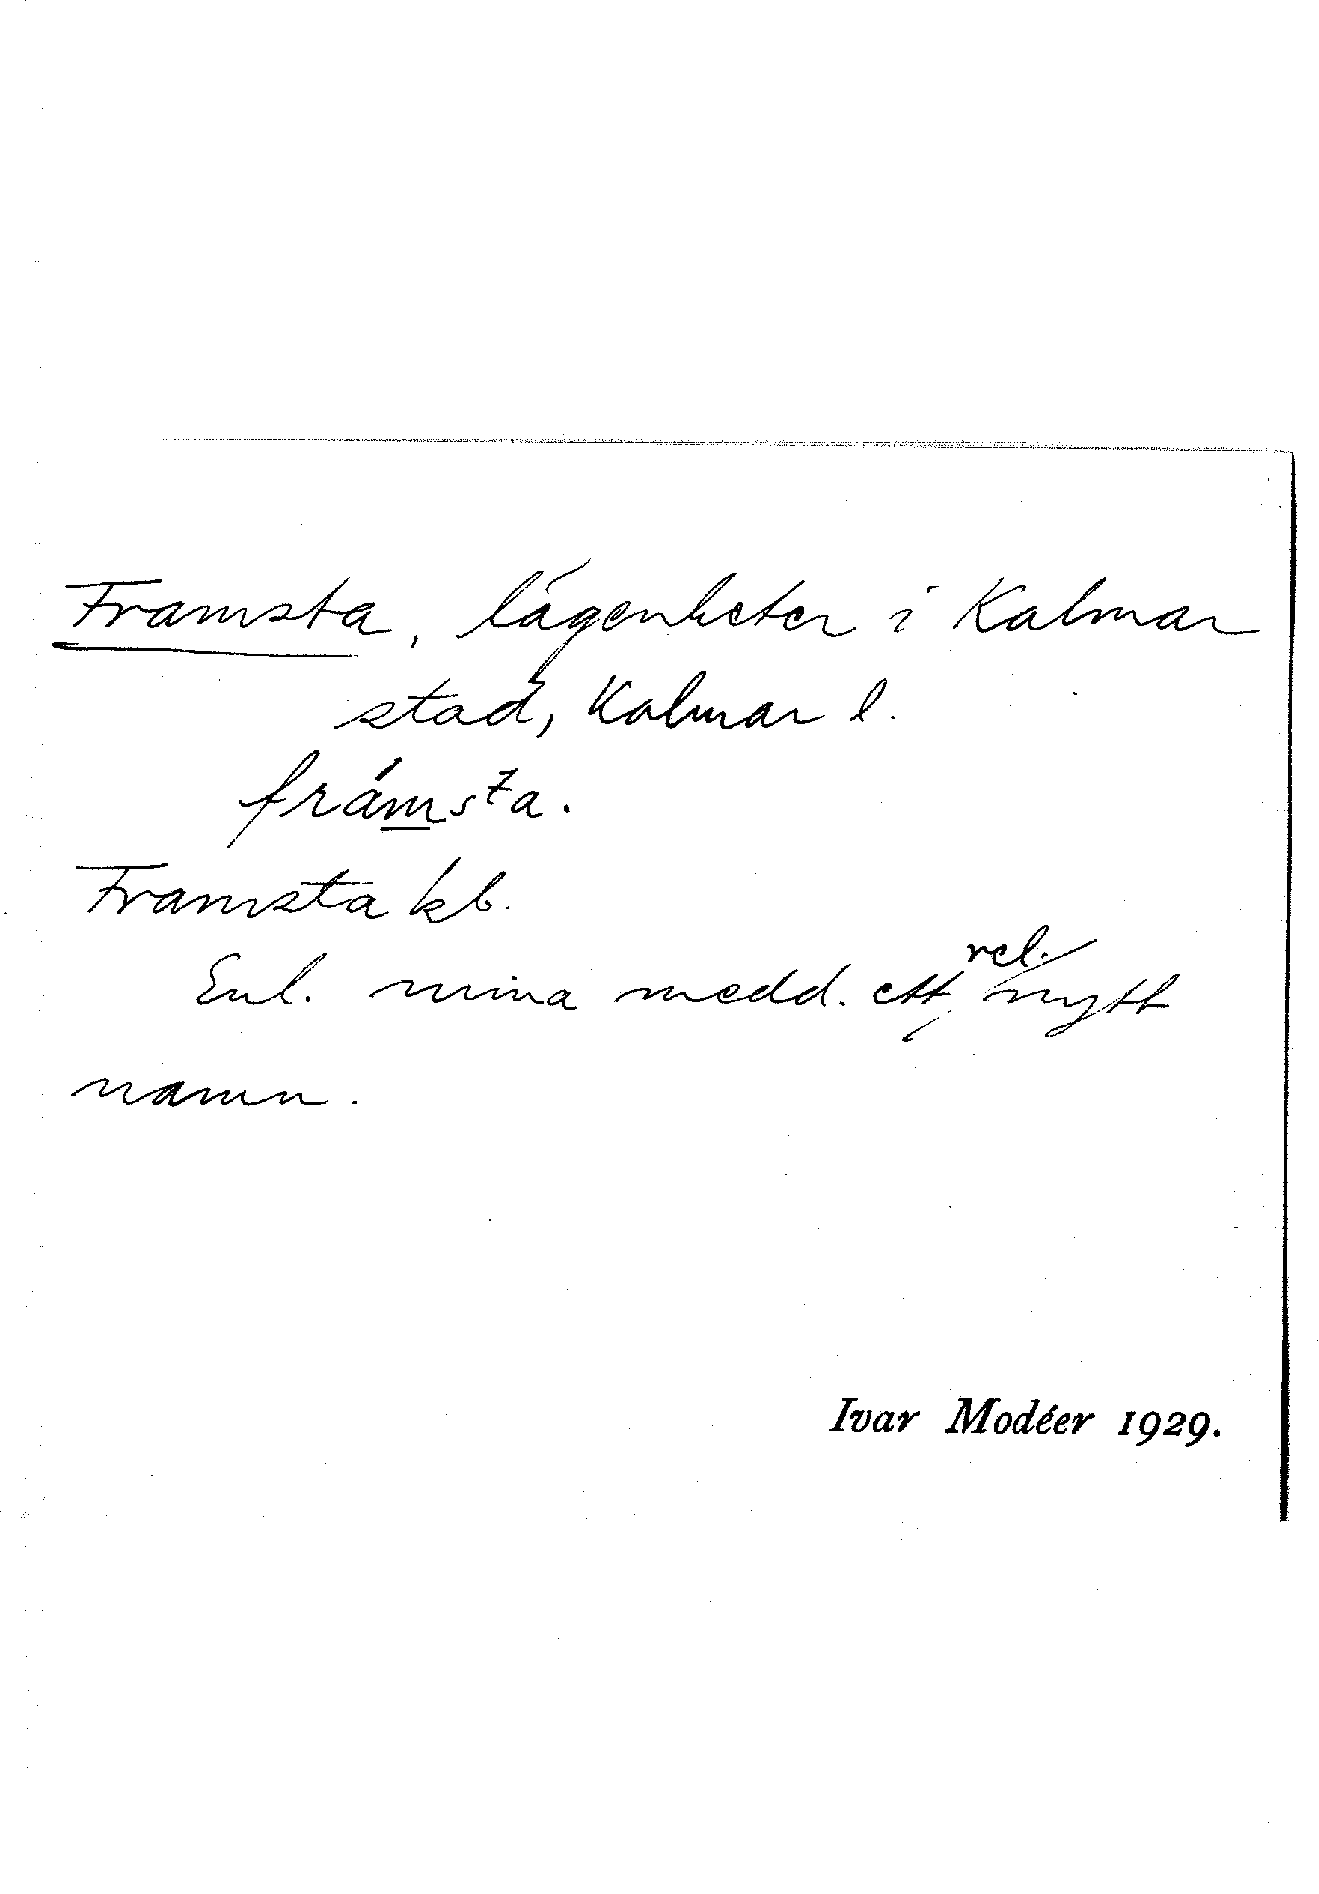 Framsta, lägenheter i Kalmar
stad, Kalmar l.
frámsta.
Framsta kb.
Enl. mina medd. ett rel. nytt
namn.
Ivar Modéer 1929.